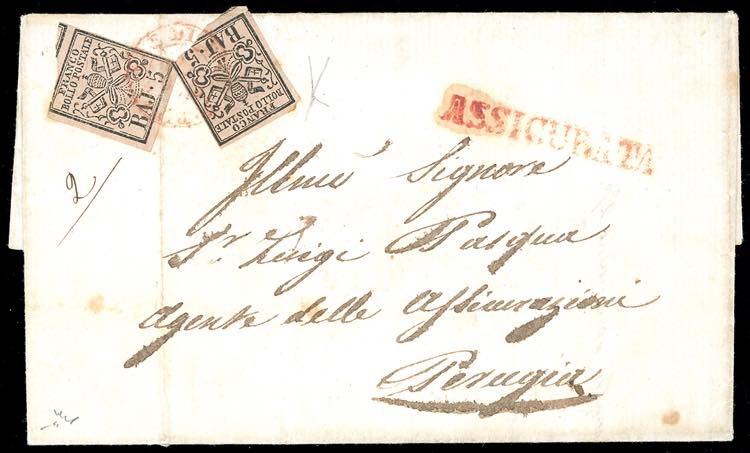 FRANCO
BOLLO POSTALE
BAJ. 5
BAJ. 5
FRANCO
BOLLO POSTALE
ASSICURATA
2/
Illmo Signore
Sr. Luigi Pasqua
Agente delle Assicurazioni
Perugia